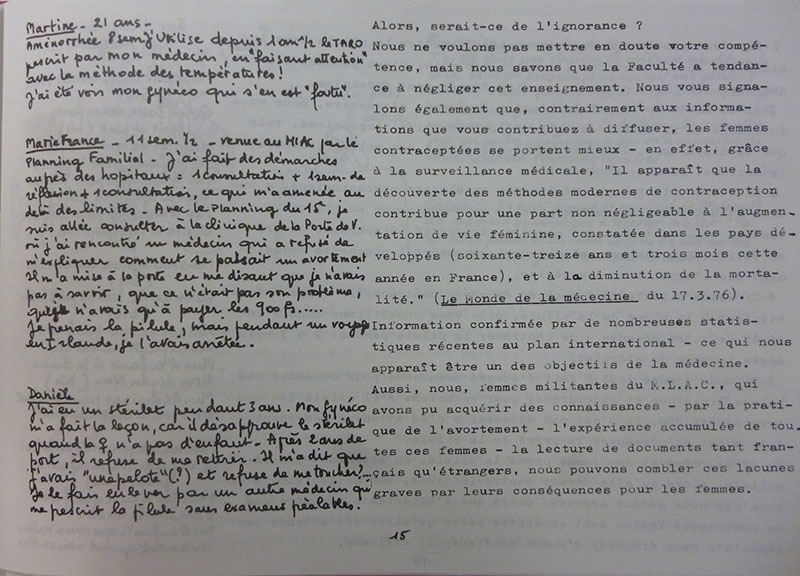 Martine - 21 ans -
Aménorrhée 8 sem. J'utilise depuis 1 an 1/2 le TARO
prescrit par mon médecin, en "faisant attention"
avec la méthode des températures !
J'ai été voir mon gynéco qui s'en est "foutu".
Marie France - 11 sem. 1/2 - venue au MLAC par le
Planning Familial - J'ai fait des démarches
auprès des hopitaux = 1 consultation + 1 sem. de
réflexion + 1 consultation, ce qui m'a amenée au
delà des limites - Avec le Planning du 15, je
suis allée consulter à la clinique de la Porte de V.
où j'ai rencontré un médecin qui a refusé de
m'expliquer comment se passait un avortement
Il m'a mise à la porte en me disant que je n'avais
pas à savoir, que ce n'était pas son problème,
que je n'avais qu'à payer les 900 fs.....
Je prenais la pilule, mais pendant un voyage
en Irlande, je l'avais arrêtée.
Danièle
J'ai eu un stérilet pendant 3 ans. Mon gynéco
m'a fait la leçon, car il désapprouve le stérilet
quand la ♀ n'a pas d'enfant - Après 2 ans de
port, il refuse de me retirer. Il m'a dit que
j'avais "une pelote" (?) et refuse de me toucher?...
Je le fais enlever par un autre médecin qui
me prescrit la pilule sans examens préalables.
Alors, serait-ce de l'ignorance ?
Nous ne voulons pas mettre en doute votre compé-
tence, mais nous savons que la Faculté a tendan-
ce à négliger cet enseignement. Nous vous signa-
lons également que, contrairement aux informa-
tions que vous contribuez à diffuser, les femmes
contraceptées se portent mieux - en effet, grâce
à la surveillance médicale, "Il apparaît que la
découverte des méthodes modernes de contraception
contribue pour une part non négligeable à l'augmen-
tation de vie féminine, constatée dans les pays dé-
veloppés (soixante-treize ans et trois mois cette
année en France), et à la diminution de la morta-
lité." (Le Monde de la médecine du 17.3.76).
Information confirmée par de nombreuses statis-
tiques récentes au plan international - ce qui nous
apparaît être un des objectifs de la médecine.
Aussi, nous, femmes militantes du M.L.A.C., qui
avons pu acquérir des connaissances - par la prati-
que de l'avortement - l'expérience accumulée de tou-
tes ces femmes - la lecture de documents tant fran-
çais qu'étrangers, nous pouvons combler ces lacunes
graves par leurs conséquences pour les femmes.
15